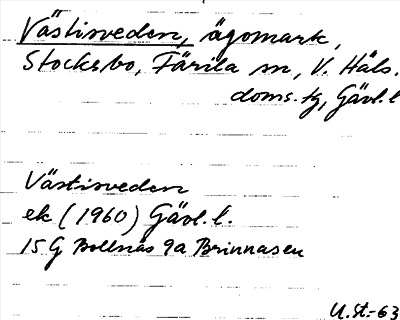 Västisveden, ägomark,
Stocksbo, Färila sn, V. Häls.
doms. tg, Gävl. l
Västisveden
ek (1960) Gävl. l.
15 G Bollnäs 9a Brinnåsen
U. St.-63